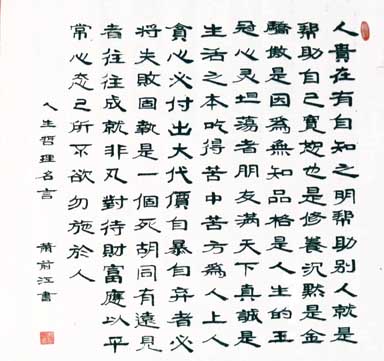 人貴在有自知之明帮助别人就是
帮助自己寬恕也是修養沉默是金
驕傲是因爲無知品格是人生的王
冠心灵坦荡者朋友满天下真誠是
生活之本吃得苦中苦方爲人上人
貪心必付出大代價自暴自弃者必
将失敗固執是一個死胡同有遠見
者往往成就非凡對待財富應以平
常心态己所不欲勿施於人
人生哲理名言
前江書